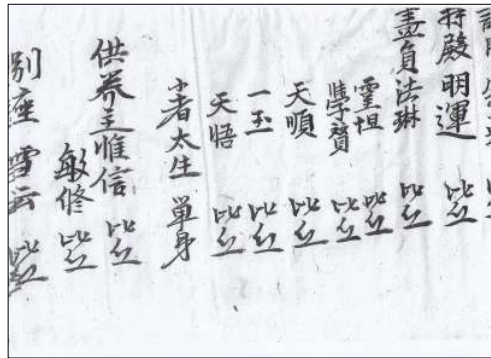 持殿明運 比丘
畫員法琳 比丘
靈坦 比丘
比丘
天順 比丘
一玉 比丘
天悟 比丘
者太生 单身
供養主惟信 比丘
敏修 比丘
別座雪云 比丘